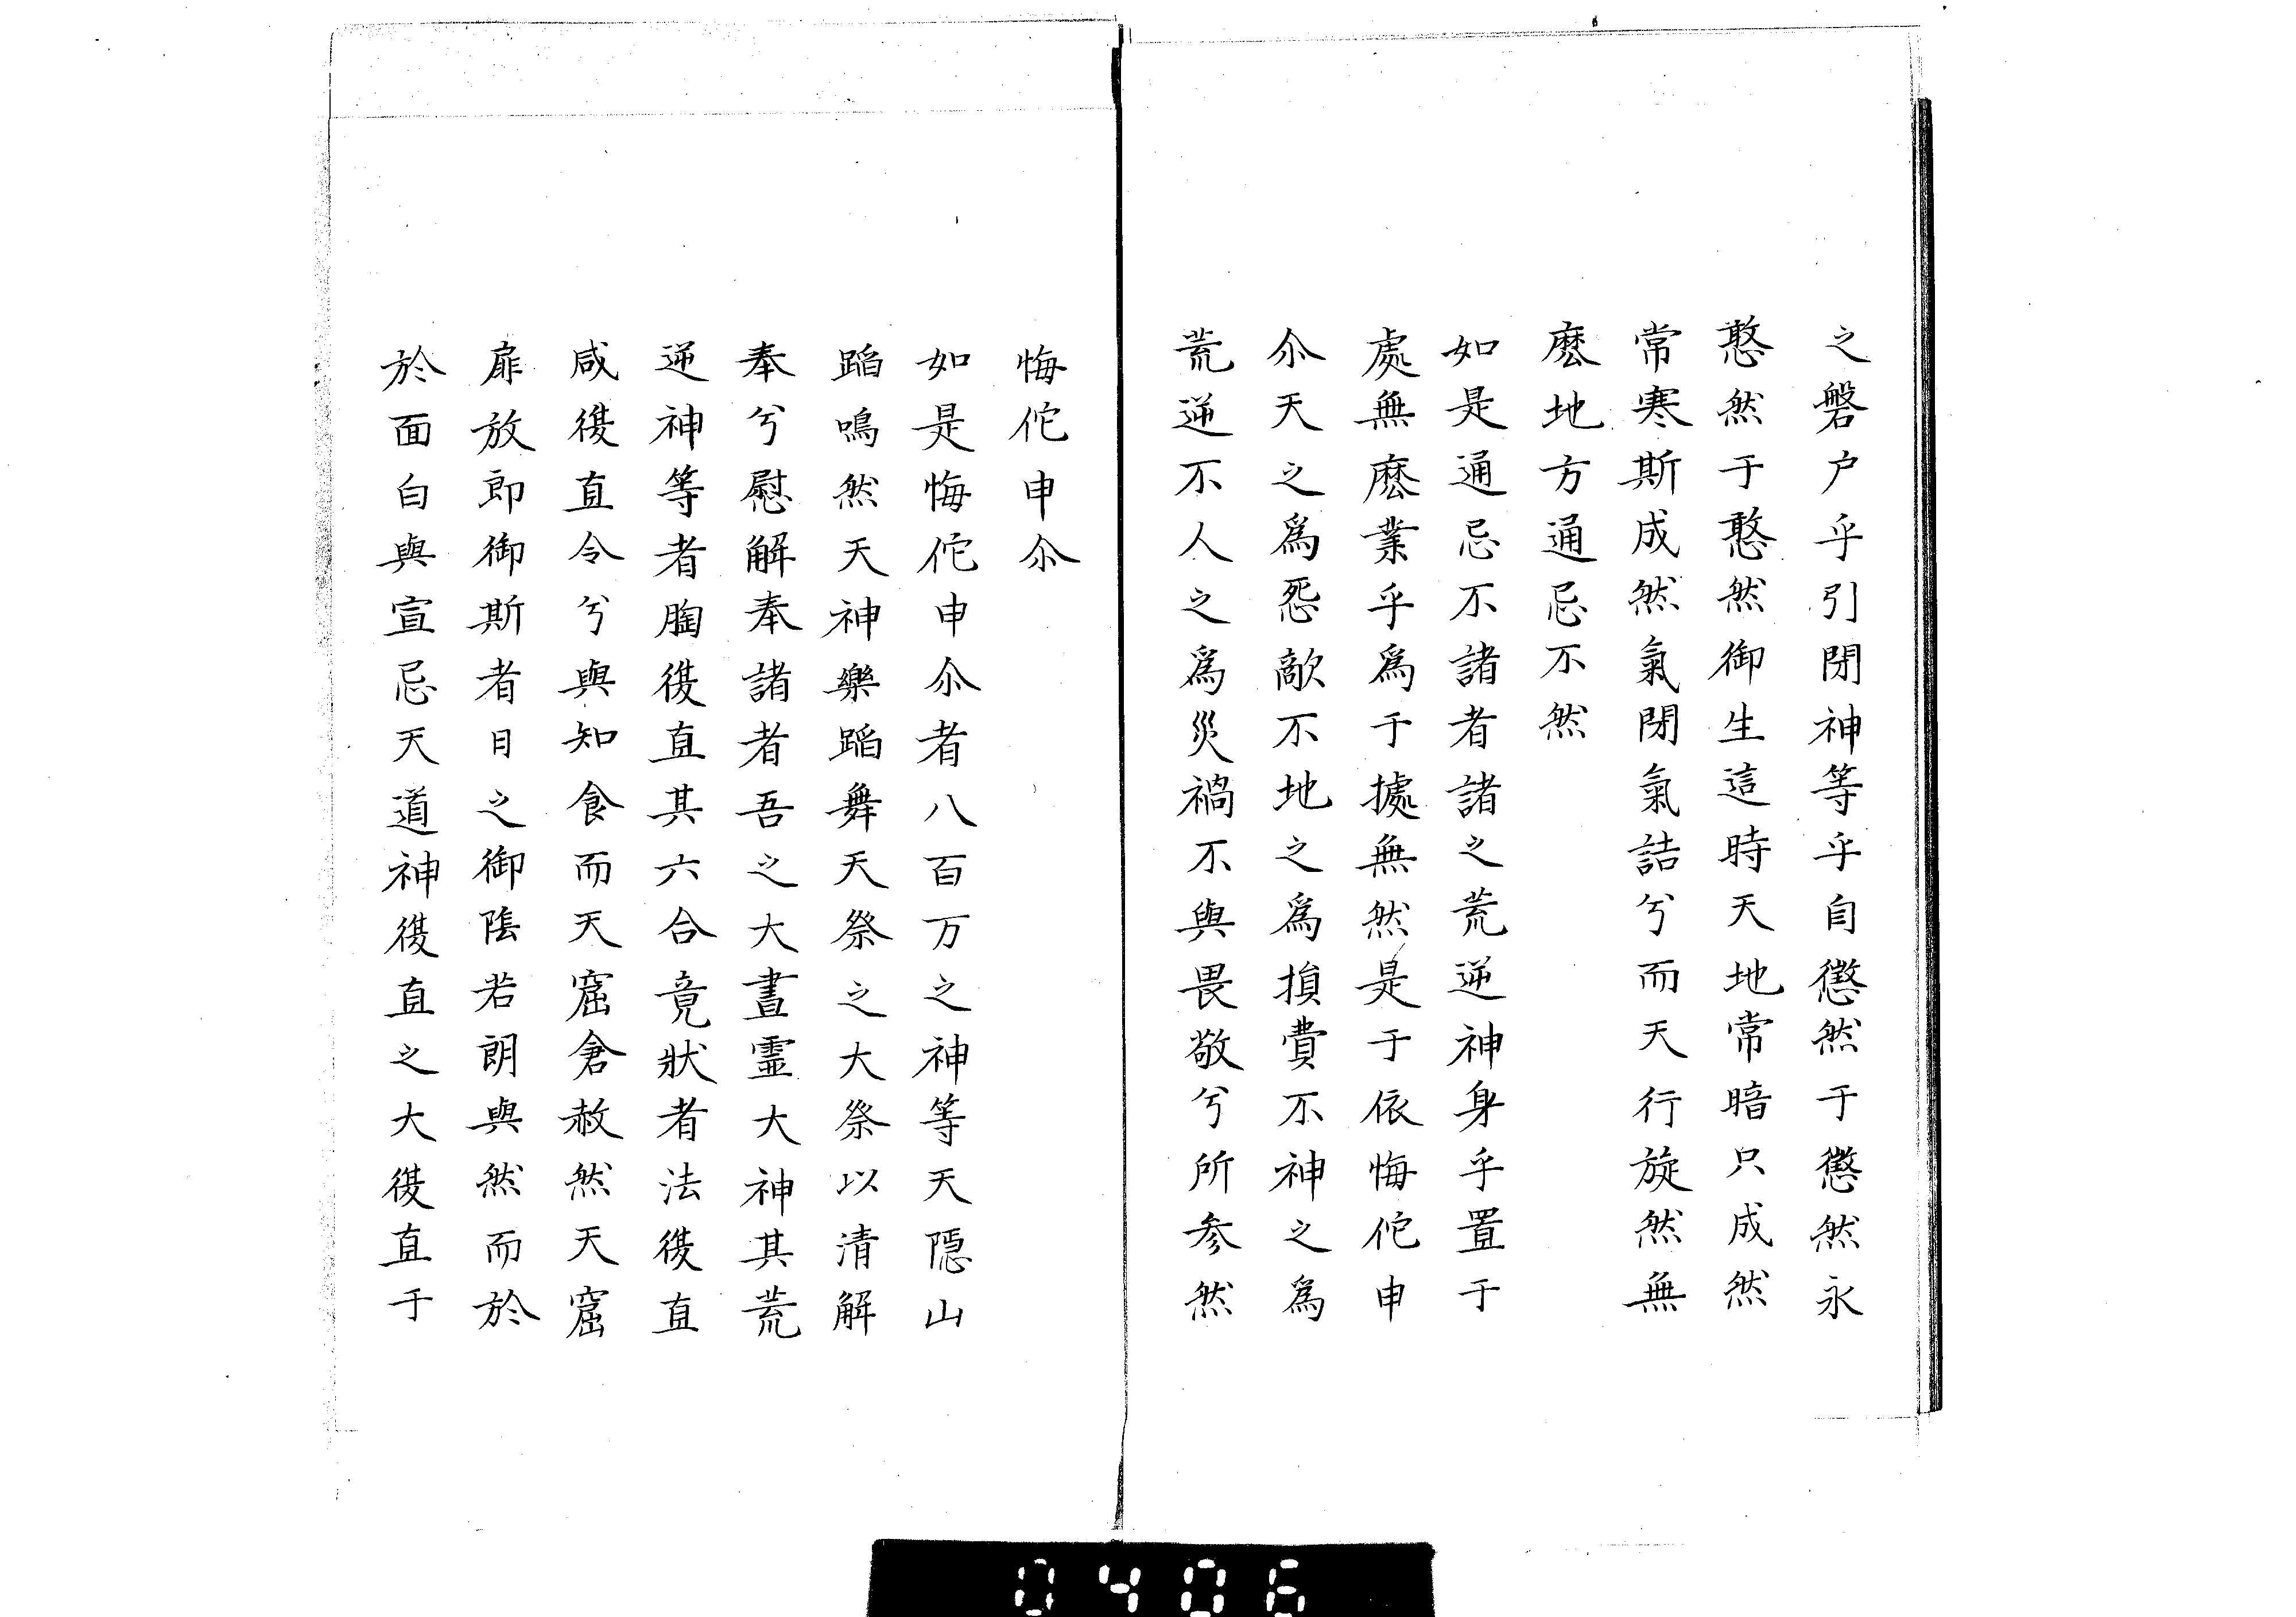 之磐戸乎引閉神等乎自懲然于懲然永
憨然于憨然御生這時天地常暗只成然
常寒斯成然氣閉氣詰兮而天行旋然無
麽地方通忌不然
如是通忌不諸者諸之荒逆神身乎置于
處無麽業乎爲于據無然是于依悔佗申
尒天之爲怨敵不地之爲損費不神之爲
荒逆不人之爲災禍不與畏敬兮所参然
悔佗申尒
如是悔佗申尒者八百万之神等天隱山
蹈鳴然天神樂蹈舞天祭之大祭以清解
奉兮慰解奉諸者吾之大晝靈大神其荒
逆神等者胸復直其六合竟狀者法復直
咸復直令兮與知食而天窟倉赦然天窟
扉放郎御斯者日之御陰若朗與然而於
於面白與宣忌天道神復直之大復直于
0406